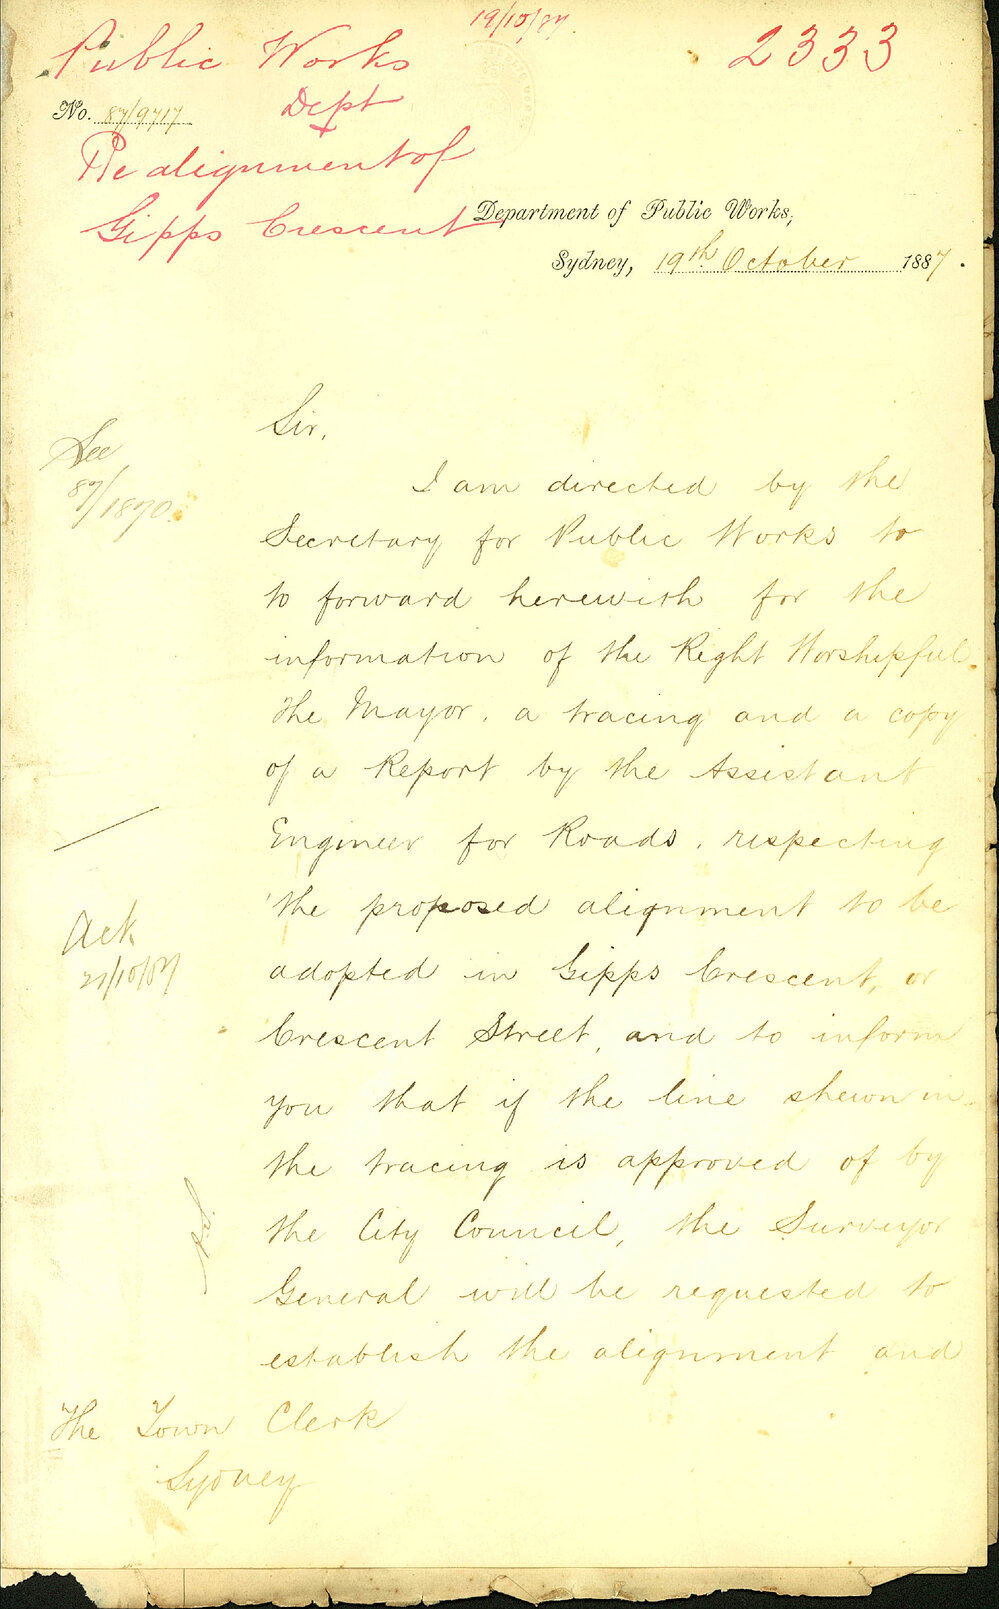 19/10/87.
2333
Public Works
Dept
No. 87/9717
Re alignment of
Gipps Crescent
Department of Public Works,
Sydney, 19th October 1887.
Sir,
See
87/1870.
I am directed by the
Secretary for Public Works to
to forward herewith for the
information of the Right Worshipful
the Mayor, a tracing and a copy
of a Report by the Assistant
Engineer for Roads, respecting
the proposed alignment to be
Ack
21/10/87
adopted in Gipps Crescent, or
Crescent Street, and to inform
you that if the line shewn in
the tracing is approved of by
the City Council, the Surveyor
General will be requested to
establish the alignment and
The Town Clerk
Sydney